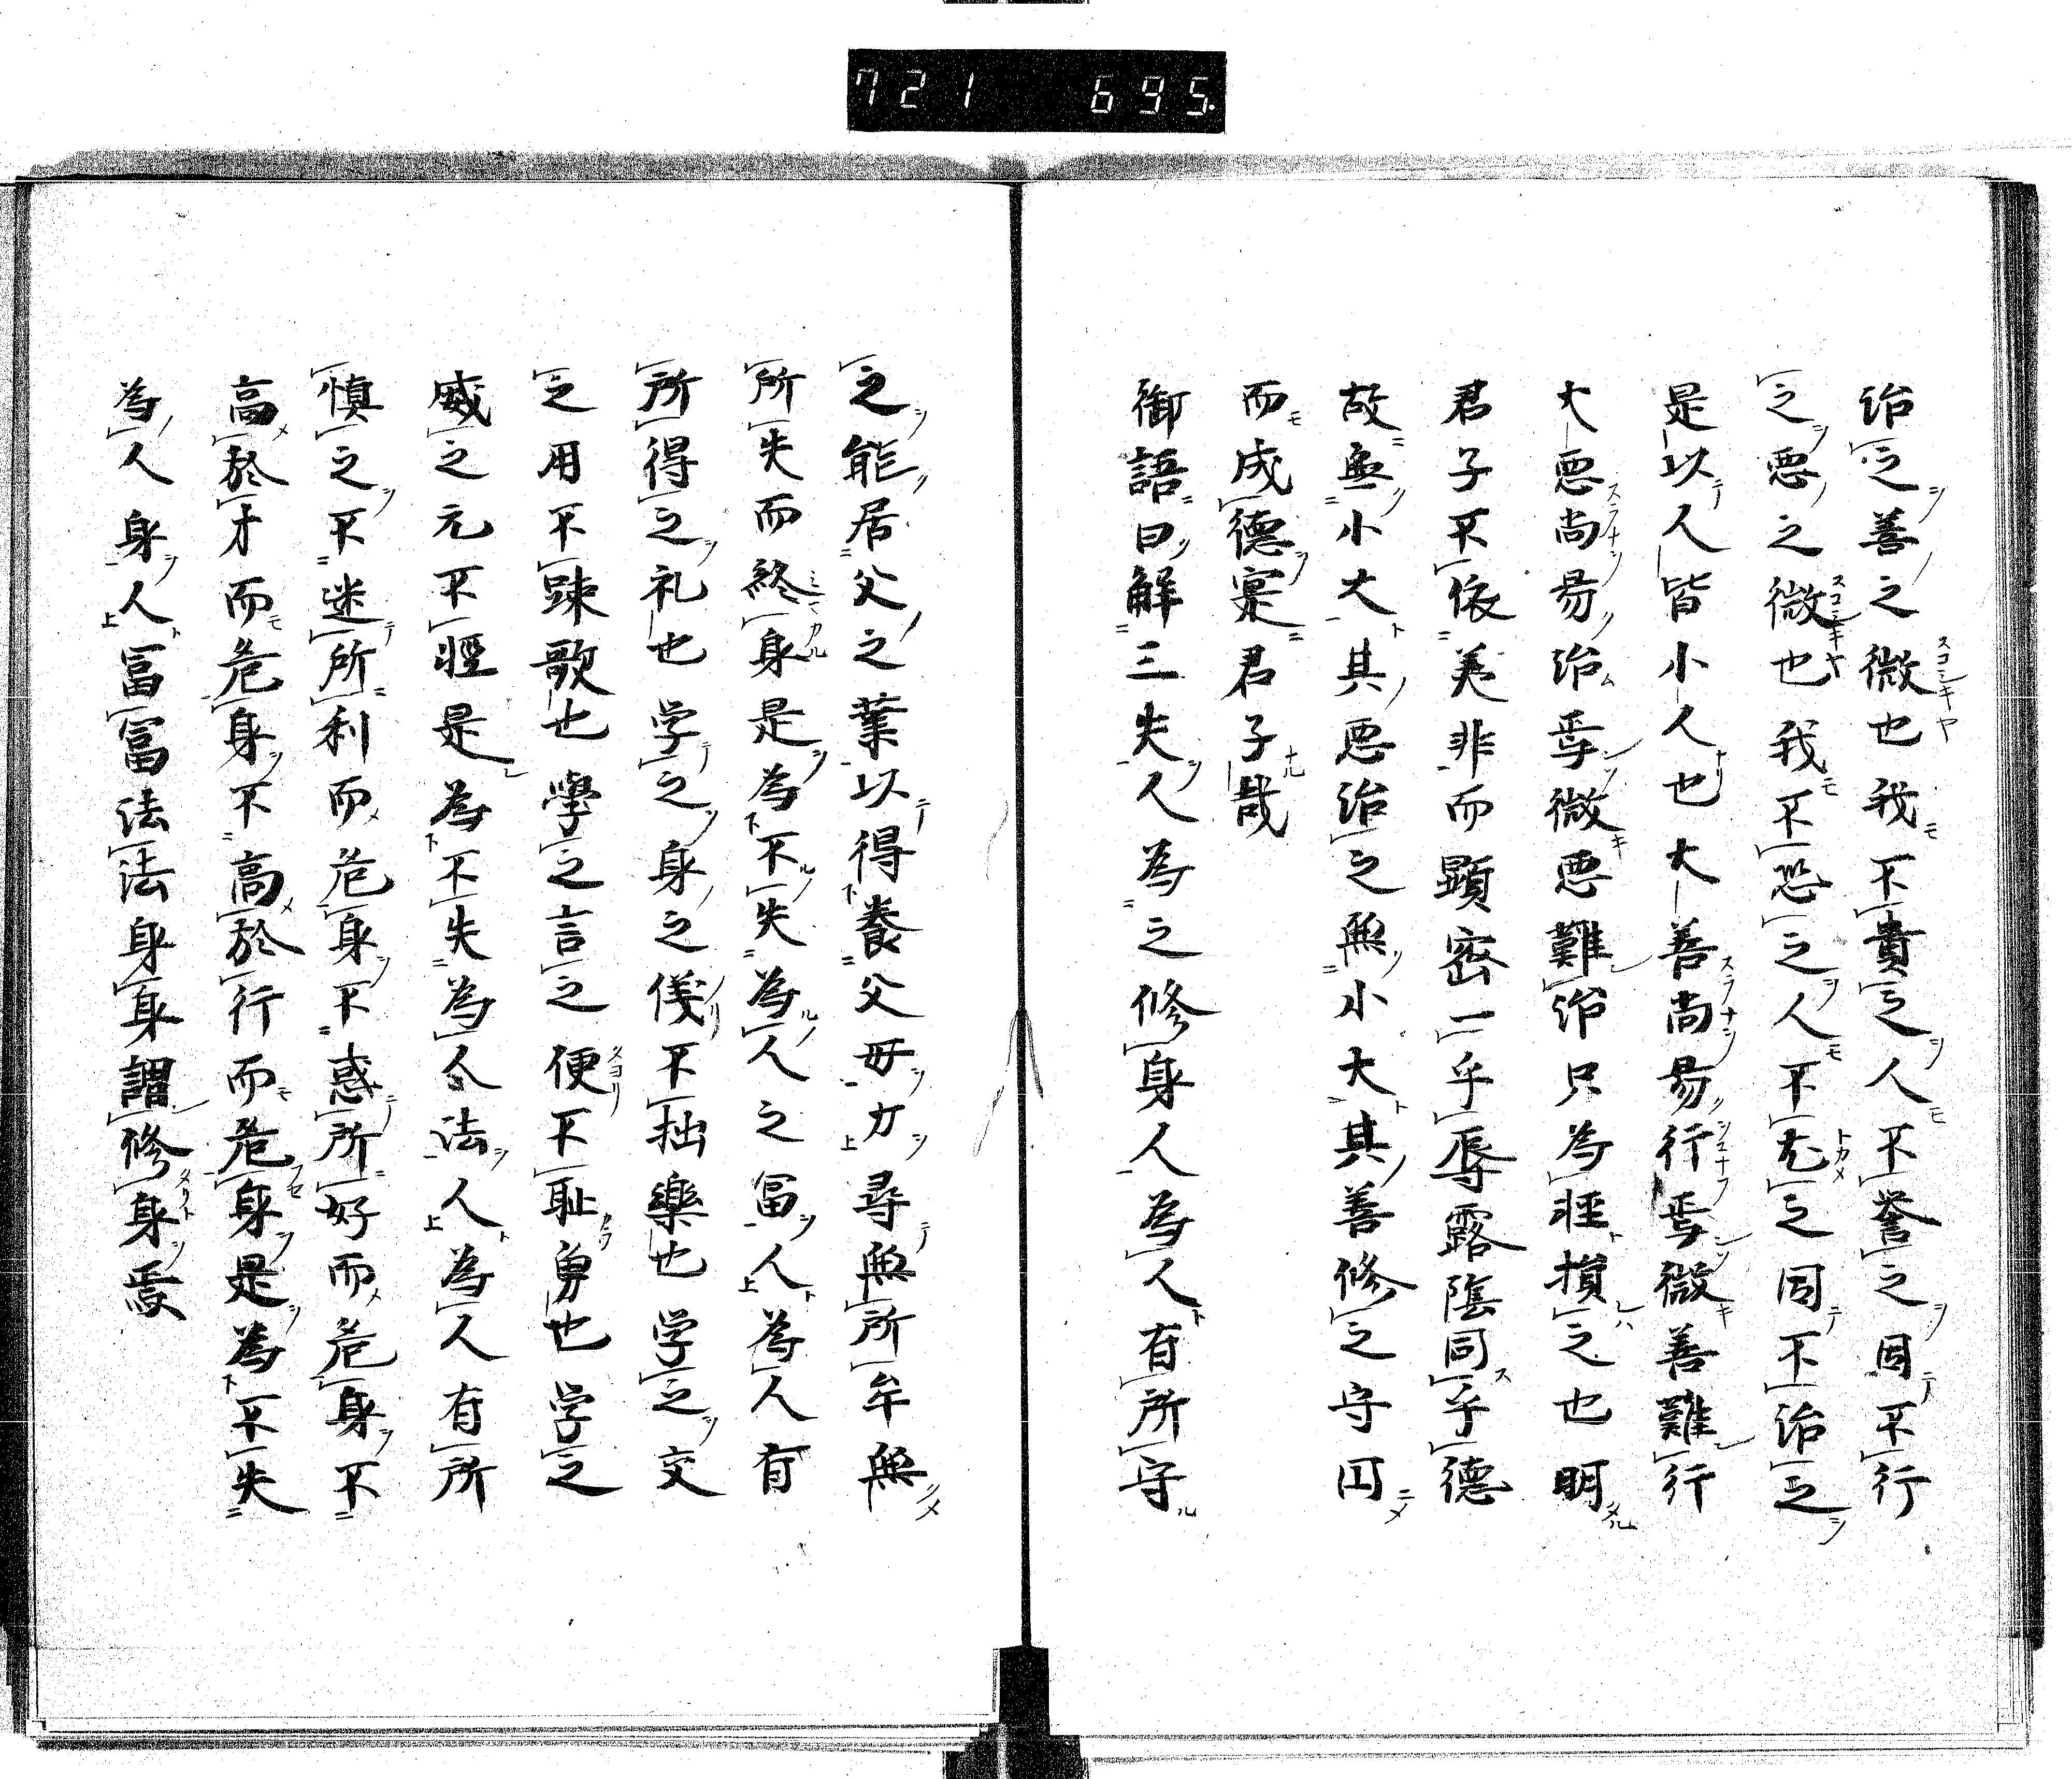 721 695.
治之善之微也我不貴之人不誉之因不行
之悪之微也我不恐之人不尤之因不治之
是以人皆小人也大善尚易行焉微善難行
大悪尚易治焉微悪難治只為軽損之也明
君子不依美非而顕密一乎辱露陰同乎德
故無小大其悪治之無小大其善修之守囙
而成德寔君子哉
御語曰解三失人為之修身人為人有所守
之能居父之業以得養父母力尋無所牟無
所失而終身是為不失為人之冨人為人有
所得之礼也学之身之儀不拙樂也学之交
之用不踈歌也學之言之便不耻䏍也学之
威之元不軽是為不失為人法人為人有所
慎之不迷所利而危身不惑所好而危身不
高於才而危身不高於行而危身是為不失
為人身人冨冨法法身身謂修身焉